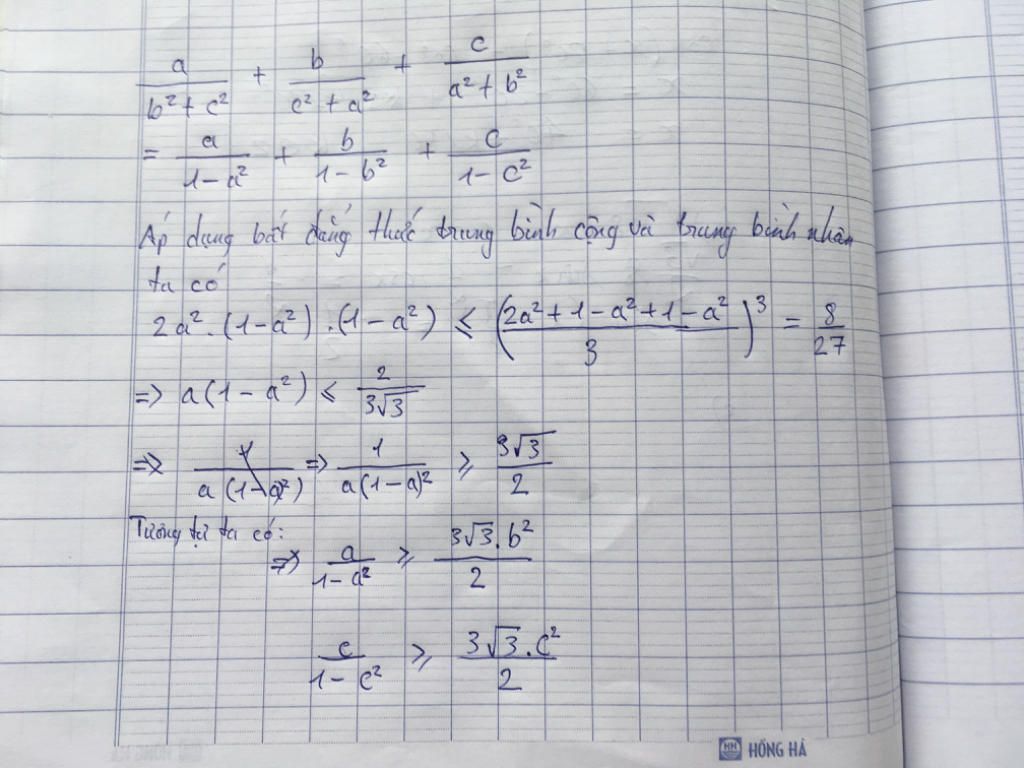 a/(b² + c²) + b/(c² + a²) + c/(a² + b²)
= a/(1 - a²) + b/(1 - b²) + c/(1 - c²)
Áp dụng bất đẳng thức trung bình cộng và trung bình nhân
ta có
2a².(1-a²).(1-a²) ≤ ((2a² + 1 - a² + 1 - a²)/3)³ = 8/27
=> a(1 - a²) ≤ 2/(3√3)
=> 1/(a(1-a²)) => 1/(a(1-a)²) ≥ 3√3/2
Tương tự ta có:
=> a/(1 - a²) ≥ 3√3.b²/2
c/(1 - c²) ≥ 3√3.c²/2
HH HỒNG HÀ